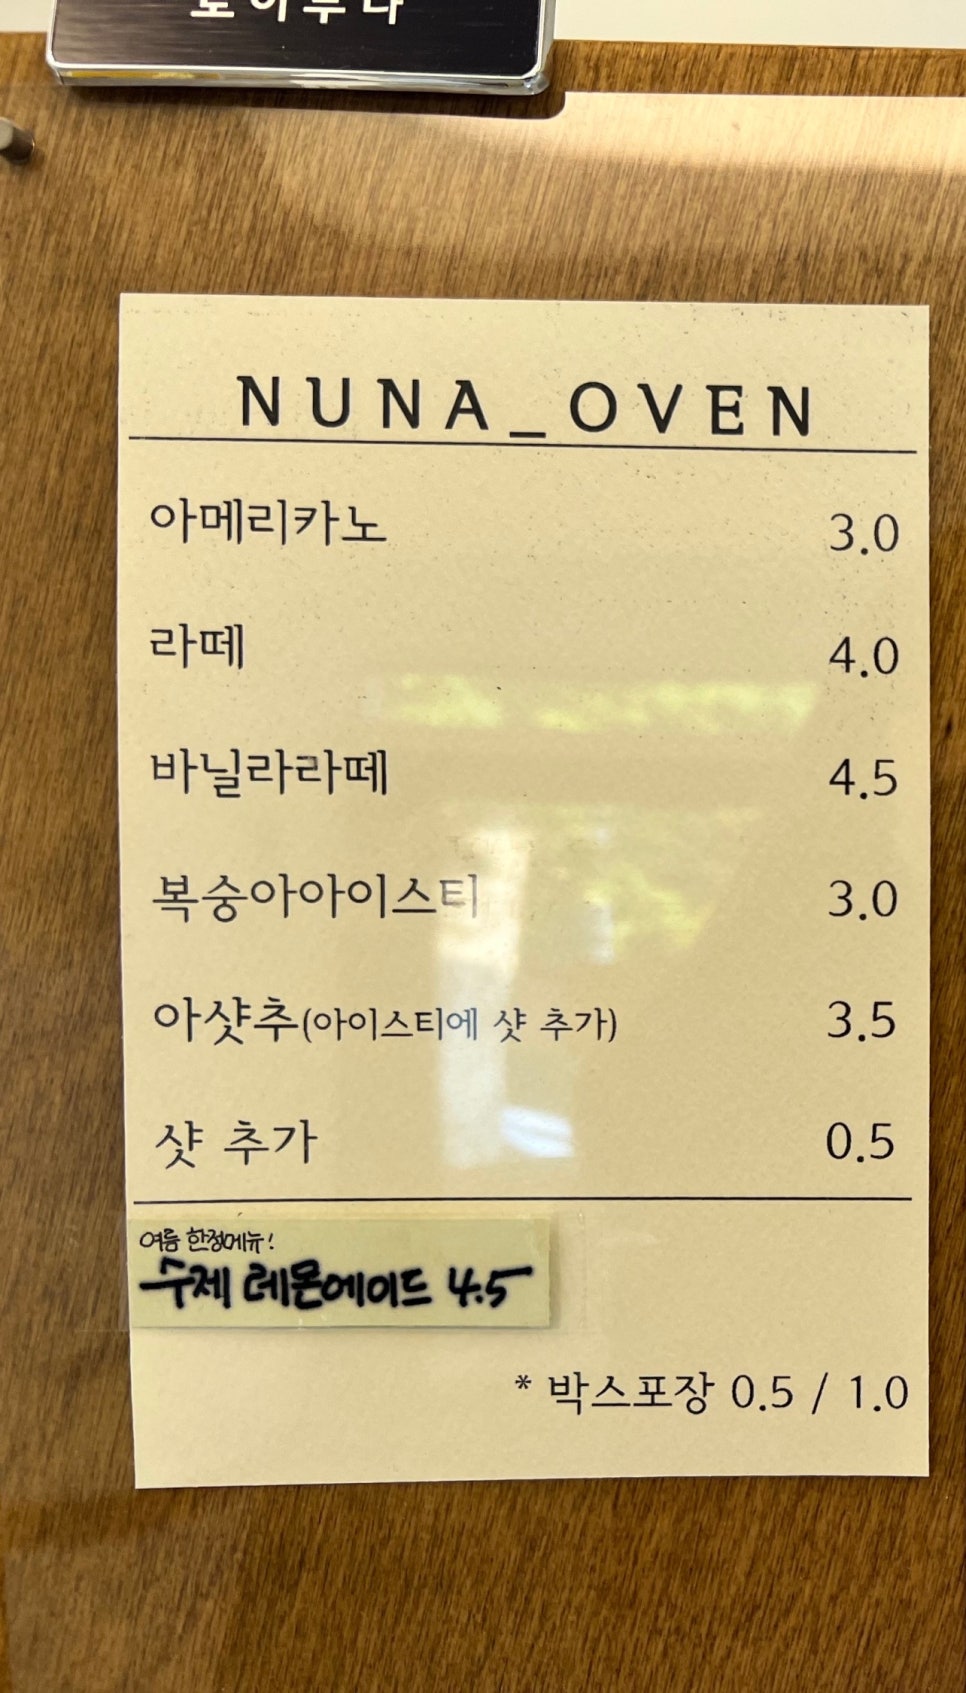 NUNA_OVEN
아메리카노 3.0
라떼 4.0
바닐라라떼 4.5
복숭아아이스티 3.0
아샷추(아이스티에 샷 추가) 3.5
샷 추가 0.5
여름 한정메뉴!
수제 레몬에이드 4.5
* 박스포장 0.5 / 1.0